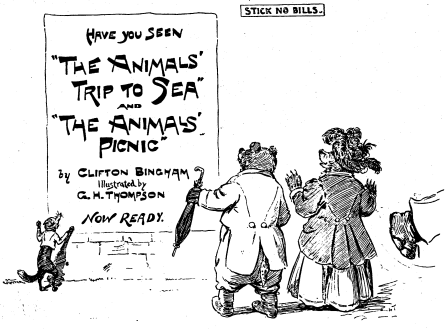 STICK NO BILLS.
HAVE YOU SEEN
"THE ANIMALS'
TRIP TO SEA"
AND
"THE ANIMALS'
PICNIC"
by CLIFTON BINGHAM
Illustrated by
G. H. THOMPSON
NOW READY.